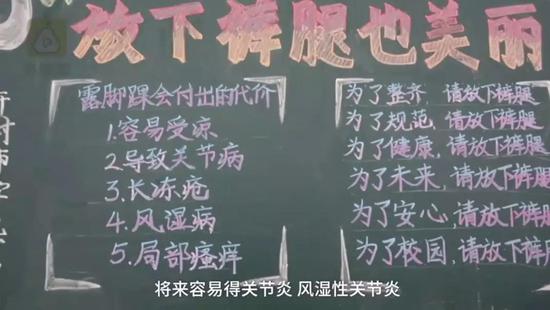 放下裤腿也美丽
露脚踝会付出的代价
1.容易受凉
2.导致关节病
3.长冻疮
4.风湿病
5.局部瘙痒
为了整齐 请放下裤腿
为了规范,请放下裤腿
为了健康,请放下裤腿
为了未来,请放下裤腿
为了安心,请放下裤腿
为了校园,请放下裤腿
将来容易得关节炎 风湿性关节炎